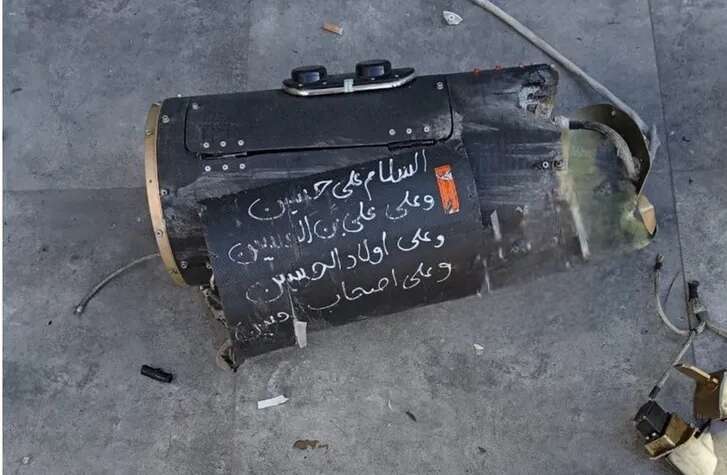 السلام على حسين
وعلى علي بن الحسين
وعلى اولاد الحسين
وعلى اصحاب حسين